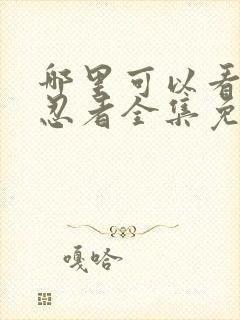 哪里可以看
忍者全集免
嘎哈